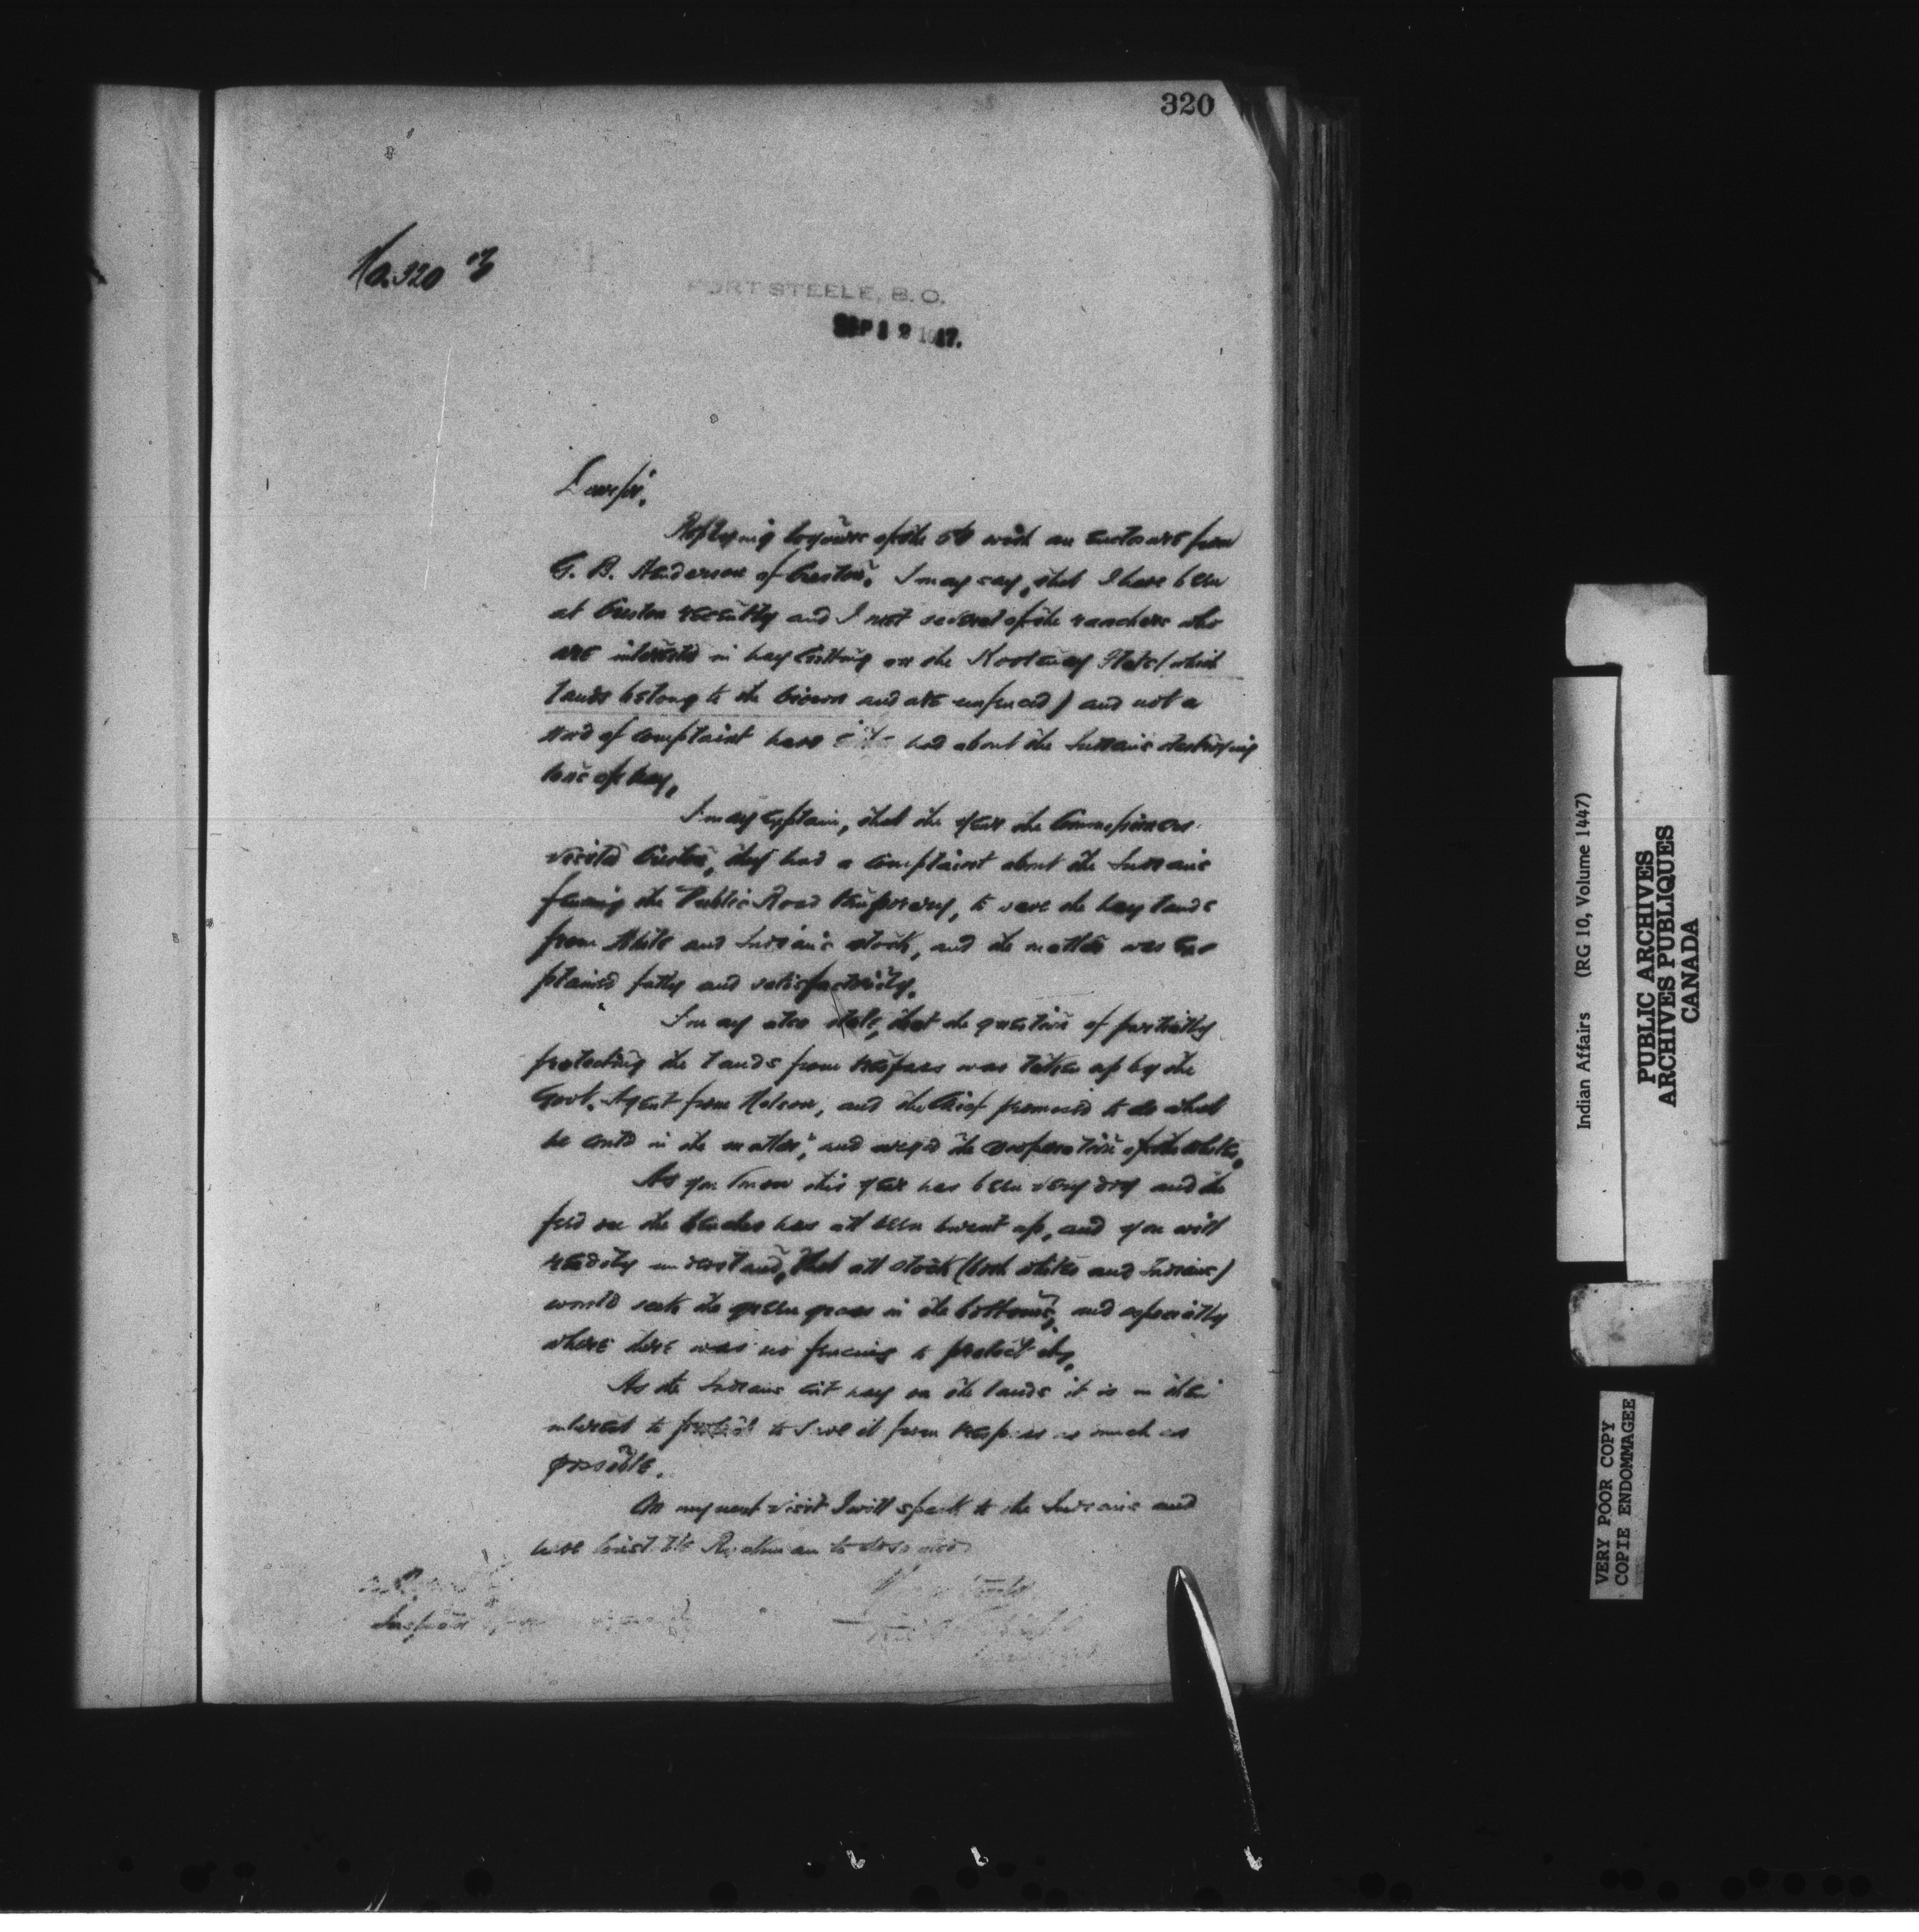 320
No. 320
FORT STEELE, B.C.
SEP 12 1917.
Dear Sir,
Replying to yours of the 5th with an enclosure from
G. B. Henderson of Creston, I may say, that I have been
at Creston recently and I met several of the ranchers who
are interested in hay cutting on the Kootenay Flats (which
lands belong to the Crown and are unfenced) and not a
word of complaint have had about the Indians destroying
tons of hay.
I may explain, that the year the Commissioners
visited Creston, they had a complaint about the Indians
fencing the Public Road temporary, to save the hay lands
from White and Indians stock, and the matter was ex-
plained fully and satisfactorily.
I may also state, that the question of partially
protecting the lands from trespass was taken up by the
Govt. Agent from Nelson, and the Chief promised to do what
he could in the matter, and urged the cooperation of the whites.
As you know this year has been very dry and the
feed on the benches has all been burnt up, and you will
readily understand, that all stock (both whites and Indians)
would seek the green grass in the bottoms, and especially
where there was no fencing to protect it.
As the Indians cut hay on the lands it is in their
interest to to save it from trespass as much as
possible.
On my next visit I will speak to the Indians and
to
Indian Affairs (RG 10, Volume 1447)
PUBLIC ARCHIVES
ARCHIVES PUBLIQUES
CANADA
VERY POOR COPY
COPIE ENDOMMAGEE